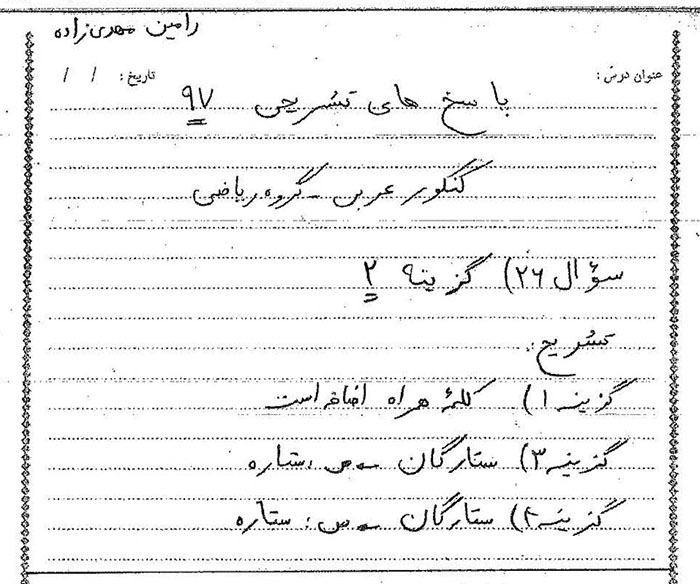 رامین مهدی‌زاده
عنوان درس: تاریخ: / /
پاسخ های تشریحی ۹۷
کنکور عربی - گروه ریاضی
سؤال ۲۶) گزینه ۲
تشریح:
گزینه ۱) کلمهٔ همراه اضافه است
گزینه ۳) ستارگان ← ص: ستاره
گزینه ۴) ستارگان ← ص: ستاره